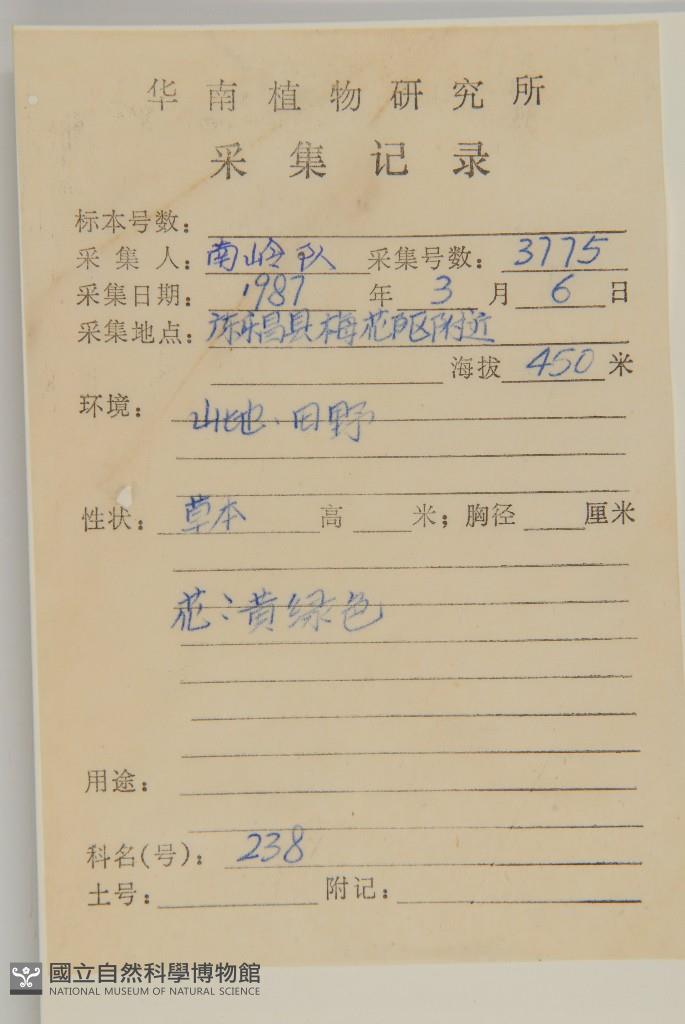 华南植物研究所
采集记录
标本号数：
采集人：南岭队 采集号数：3775
采集日期：1987年3月6日
采集地点：乐昌县梅花附近
海拔450米
环境：山地、田野
性状：草本 高 米；胸径 厘米
花：黄绿色
用途：
科名(号)：238
土号： 附记：
國立自然科學博物館
NATIONAL MUSEUM OF NATURAL SCIENCE